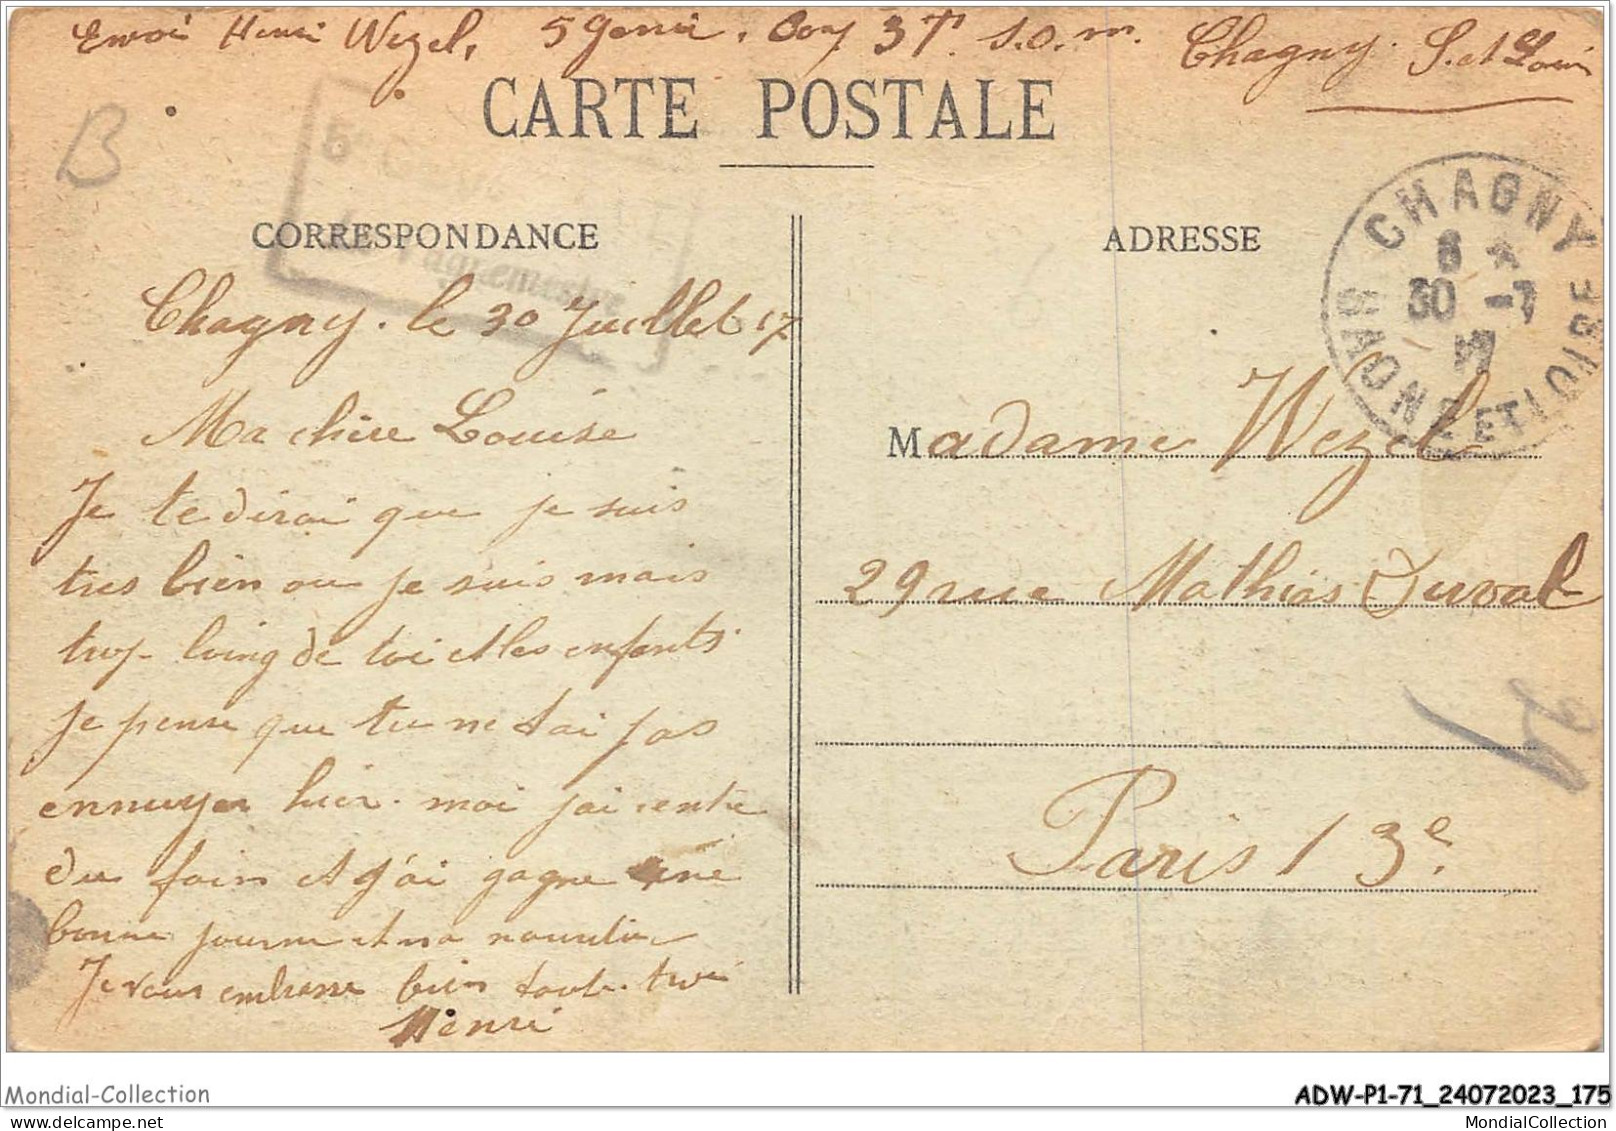 Envoi Henri Wezel, 5 Genie. Coy 3T. S.O.M. Chagny. S. et Loir
CARTE POSTALE
B
5e
Vaguemestre
CORRESPONDANCE
ADRESSE
CHAGNY
SAONE ET LOIRE
6 *
30 -7
17
Chagny. le 30 Juillet 17
Ma chere Louise
Je te dirai que je suis
tres bien ou je suis mais
trop loing de toi et les enfants
je pense que tu ne tai pas
ennuyer hier. moi jai rentre
du foin et j'ai gagne une
bonne journe et na nouritu
Je vous embrasse bien toute troi
Henri
Madame Wezel
29 rue Mathias Duval
Paris 13e.
Mondial-Collection
ADW-P1-71_24072023_175
MondialCollection